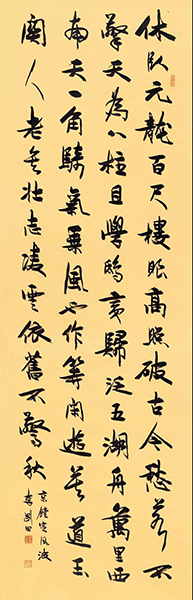 休臥元龍百尺樓眼高照破古今愁若不
擎天為八柱且學鴟夷歸泛五湖舟萬里西
南天一角騎氣乘風也作等閑遊莫道玉
關人老矣壯志凌雲依舊不驚秋
京鏜定風波
李剛田